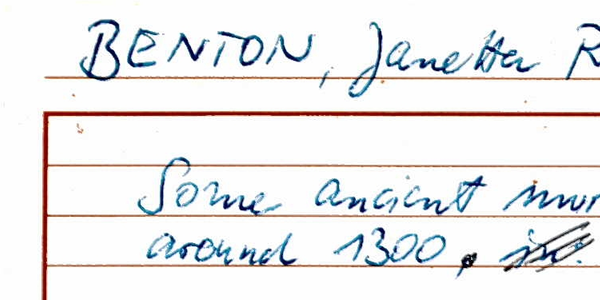 BENTON, Janetta R
Some ancient
around 1300,